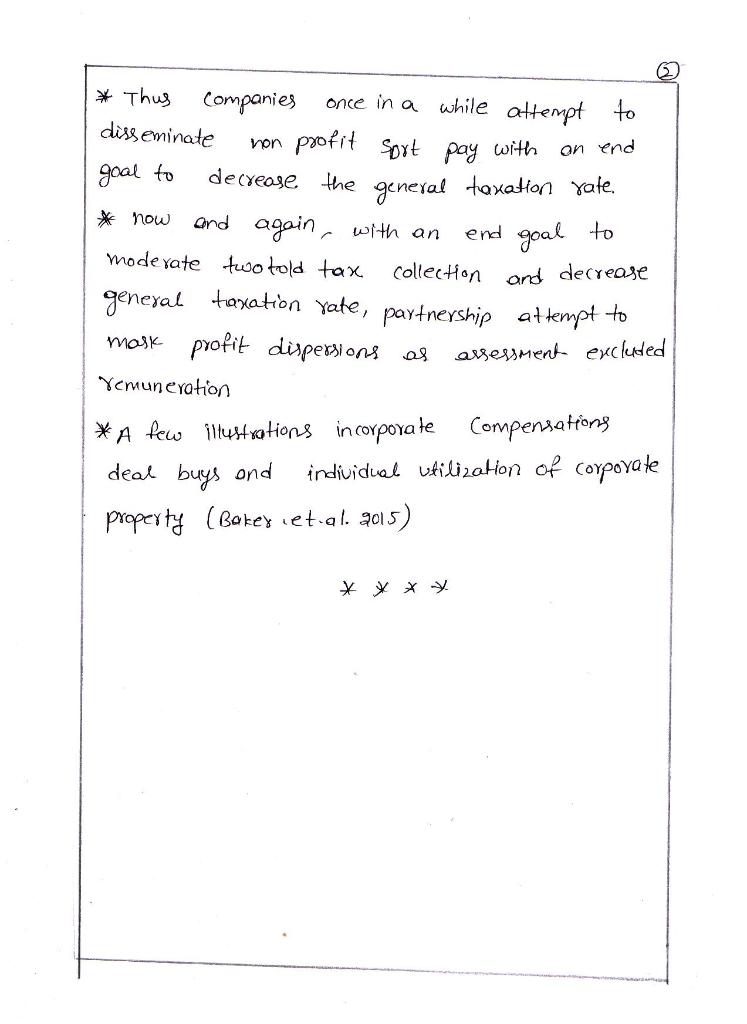 2
* Thus Companies once in a while attempt to
disseminate non profit sort pay with an end
goal to decrease the general taxation rate.
* now and again, with an end goal to
moderate twotold tax collection and decrease
general taxation rate, partnership attempt to
mask profit dispersions as assessment excluded
remuneration
* A few illustrations incorporate Compensations
deal buys and individual utilization of corporate
property (Baker .et.al. 2015)
* * * *